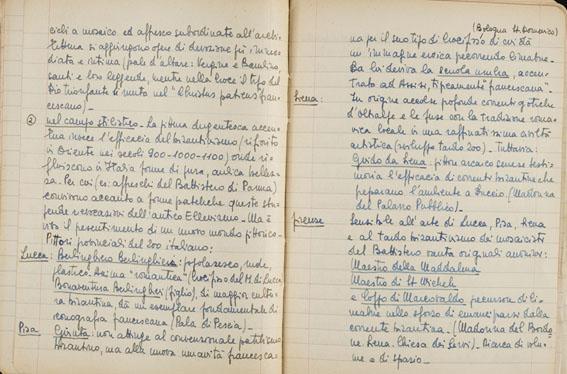 cicli a mosaico ed affresco subordinate all'archi-
tettura si aggiungono opere di devozione più imme-
diata e intima (pale d'altare: Vergine e Bambino
santi e loro leggende, mentre nella croce il tipo del
Dio trionfante si muta nel "Christus patiens" fran-
cescano)_
② nel campo stilistico_ La pittura dugentesca accen-
tua invece l'efficacia del bizantinismo (rifiorito
in Oriente nei secoli 900-1000-1100) onde ri-
fluiscono in Italia forme di pura, aulica bellez-
za. Per cui (es: affreschi del Battistero di Parma)
convivono accanto a forme patetiche queste stu-
pende rievocazioni dell'antico Ellenismo_ Ma è
vivo il presentimento di un nuovo mondo pittorico_
Pittori provinciali del 200 italiano:
Lucca: Berlinghiero Berlinghieri: popolaresco, rude,
plastico. Anima "romantica" (Crocifisso del M. di Lucca)
Bonaventura Berlinghieri (figlio), di maggior cultu-
ra bizantina, dà un esemplare fondamentale di
iconografia francescana (Pala di Pescia)_
Pisa Giunta: non attinge al convenzionale patetismo
bizantino, ma alla nuova umanità francesca-
(Bologna St. Domenico)
na per il suo tipo di Crocifisso di cui dà
un'immagine eroica percorrendo Cimabue_
Da lui deriva la scuola umbra, accen-
trata ad Assisi, tipicamente "francescana"_
Siena: In origine accolse profonde correnti gotiche
d'Oltralpe e le fuse con la tradizione roma-
nica locale in una raffinatissima civiltà
artistica (sviluppo tardo 200)_ Tuttavia:
Guido da Siena: pittore arcaico senese testi-
monia l'efficacia di correnti bizantine che
preparano l'ambiente a Duccio_ (Madonna
del Palazzo Pubblico)_
Firenze Sensibile all'arte di Lucca, Pisa, Siena
e al tardo bizantinismo dei mosaicisti
del Battistero vanta originali anonimi:
Maestro della Maddalena
Maestro di St Michele
e Coppo di Marcovaldo precursore di Ci-
mabue nello sforzo di emanciparsi dalla
corrente bizantina_ (Madonna del Bordo-
ne. Siena. Chiesa dei Servi)_ Ricerca di volu-
me e di spazio_